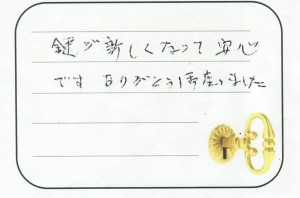 鍵が新しくなって安心
です ありがとう御座いました